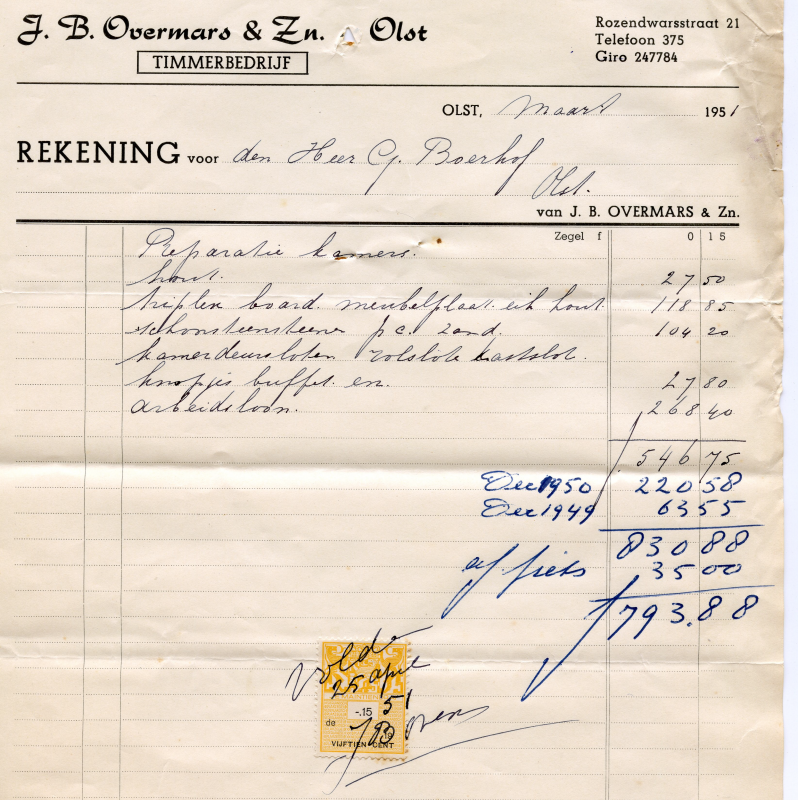 J. B. Overmars & Zn. Olst
TIMMERBEDRIJF
Rozendwarsstraat 21
Telefoon 375
Giro 247784
OLST, Maart 1951
REKENING voor den Heer G. Boerhof
Olst.
van J. B. OVERMARS & Zn.
Zegel f 0 15
Reparatie kamers.
hout. 27 50
triplex board. meubelplaat. eik hout. 118 85
schoorsteenstenen p.c. zand. 104 20
kamerdeursloten rolslote kastslot.
knopjes buffet en. 27 80
arbeidsloon. 268 40
546 75
Dec 1950 220 58
Dec 1949 63 55
830 88
af fiets 35 00
793.88
Vold
25 april
51
-.15
de
19
VIJFTIEN CENT
JB Overm